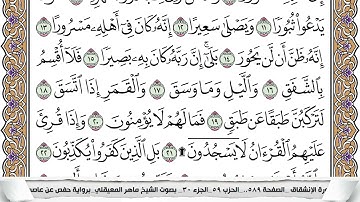 يَدْعُوا۟ ثُبُورًا ١١ وَيَصْلَىٰ سَعِيرًا ١٢ إِنَّهُۥ كَانَ فِىٓ أَهْلِهِۦ مَسْرُورًا ١٣
إِنَّهُۥ ظَنَّ أَن لَّن يَحُورَ ١٤ بَلَىٰٓ إِنَّ رَبَّهُۥ كَانَ بِهِۦ بَصِيرًا ١٥ فَلَآ أُقْسِمُ
بِٱلشَّفَقِ ١٦ وَٱلَّيْلِ وَمَا وَسَقَ ١٧ وَٱلْقَمَرِ إِذَا ٱتَّسَقَ ١٨
لَتَرْكَبُنَّ طَبَقًا عَن طَبَقٍ ١٩ فَمَا لَهُمْ لَا يُؤْمِنُونَ ٢٠ وَإِذَا قُرِئَ
عَلَيْهِمُ ٱلْقُرْءَانُ لَا يَسْجُدُونَ ۩ ٢١ بَلِ ٱلَّذِينَ كَفَرُوا۟ يُكَذِّبُونَ ٢٢
رة الإنشقاق _ الصفحة ٥٨٩ .. الحزب ٥٩ _ الجزء ٣٠ . بصوت الشيخ ماهر المعيقلي . برواية حفص عن عاصم